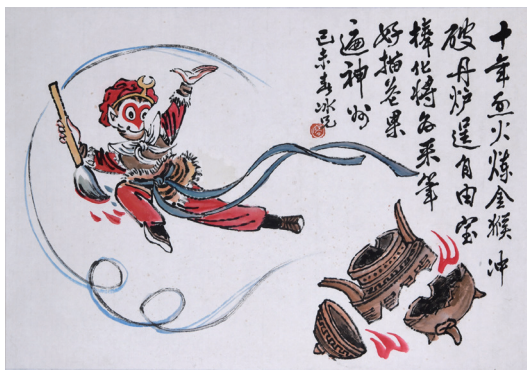 十年烈火炼金猴冲
破丹炉逞自由宝
棒化将为采筆
好描花果
遍神州
己未春冰兄